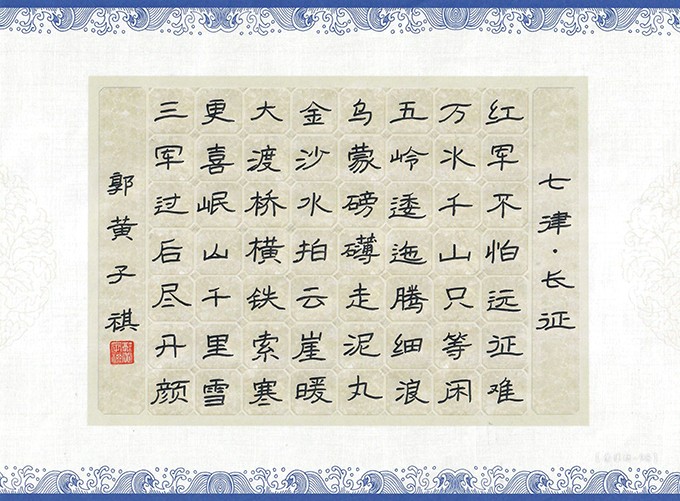 七律·长征
红军不怕远征难
万水千山只等闲
五岭逶迤腾细浪
乌蒙磅礴走泥丸
金沙水拍云崖暖
大渡桥横铁索寒
更喜岷山千里雪
三军过后尽开颜
郭黄子祺